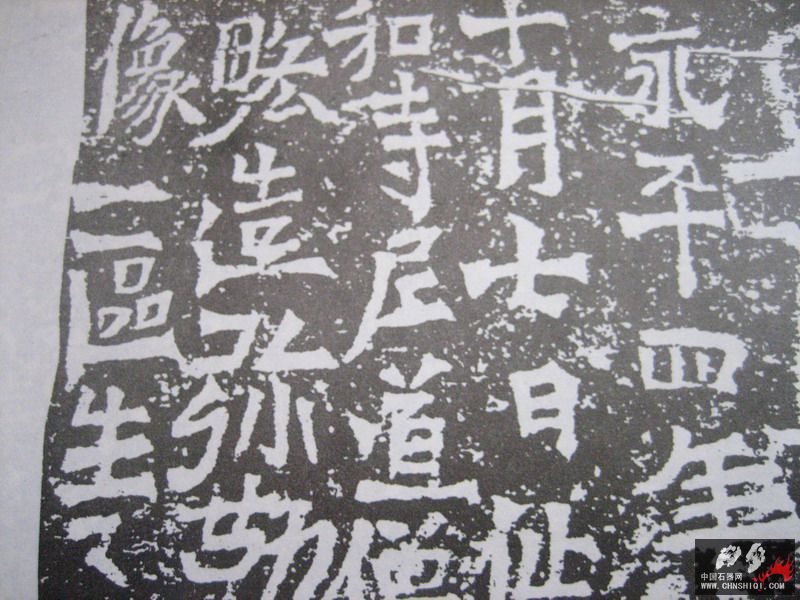 永平四年
十月七日仙
和寺尼道僧
略造弥勒
像一區生〻
中国石器网
WWW.CHNSHIQI.COM